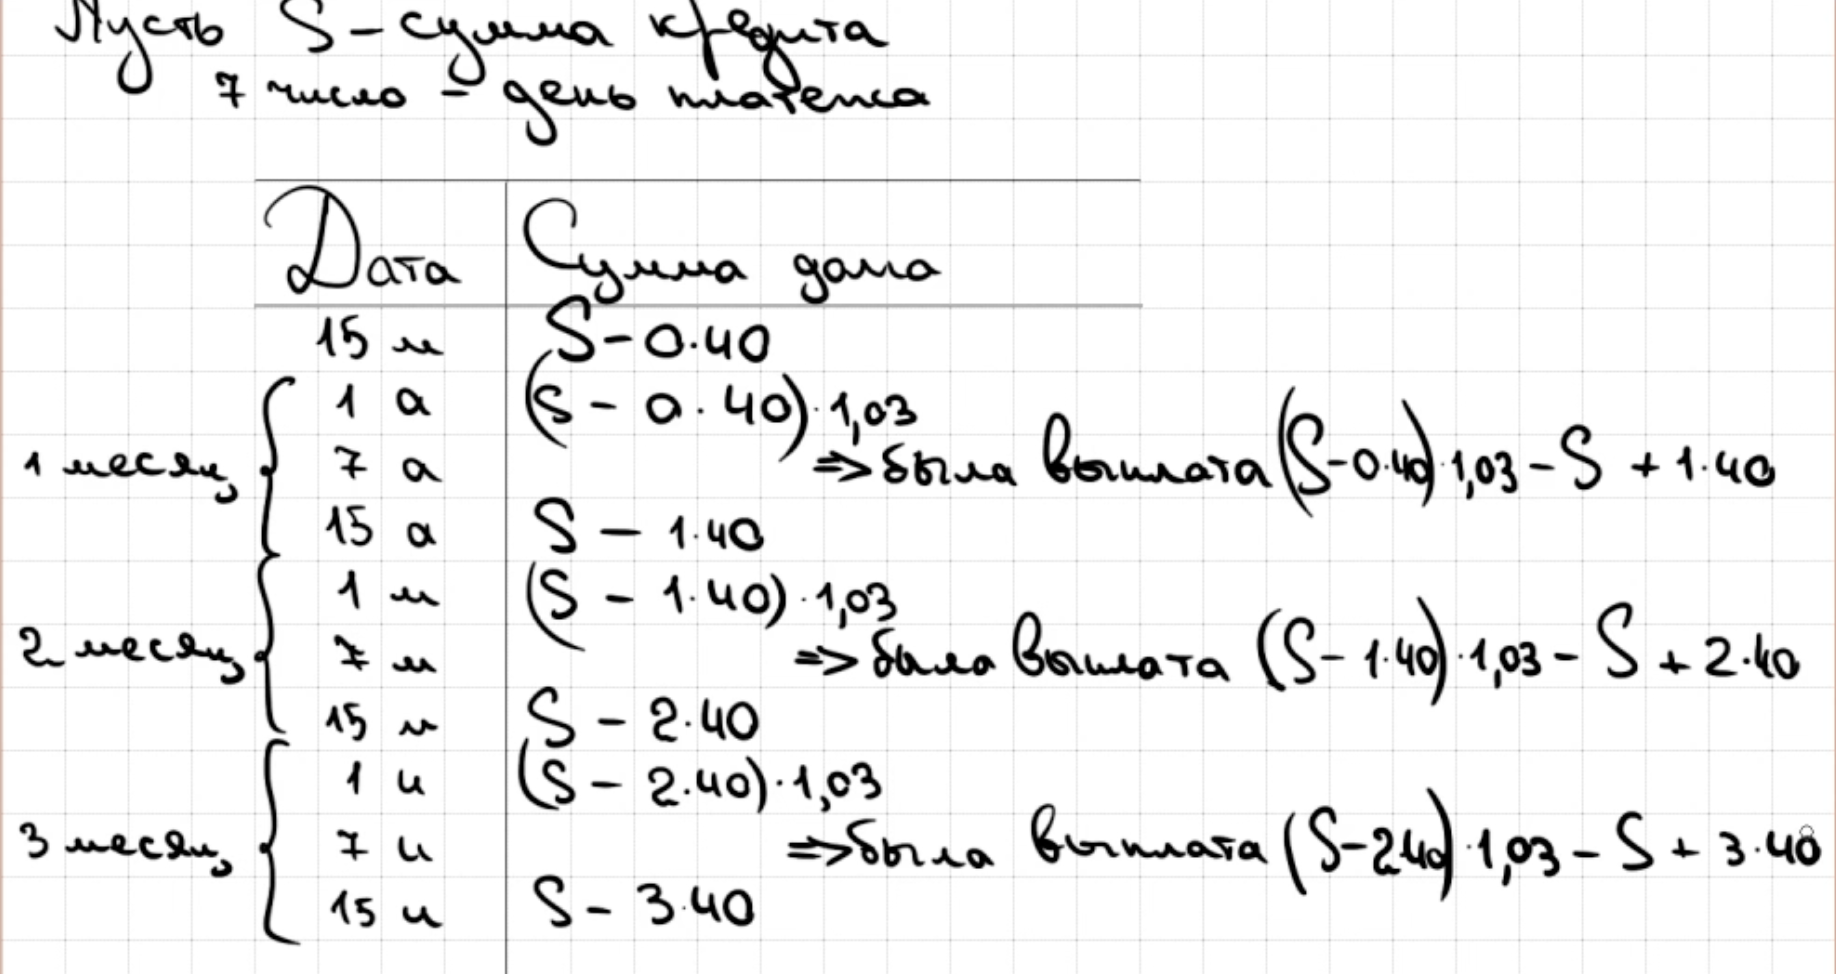 Пусть S - сумма кредита
7 число - день платежа
Дата Сумма долга
15 м S - 0·40
1 а (S - 0·40)·1,03
1 месяц 7 а => была выплата (S-0·40)·1,03 - S + 1·40
15 а S - 1·40
1 м (S - 1·40)·1,03
2 месяц 7 м => была выплата (S - 1·40)·1,03 - S + 2·40
15 м S - 2·40
1 и (S - 2·40)·1,03
3 месяц 7 и => была выплата (S-2·40)·1,03 - S + 3·40
15 и S - 3·40